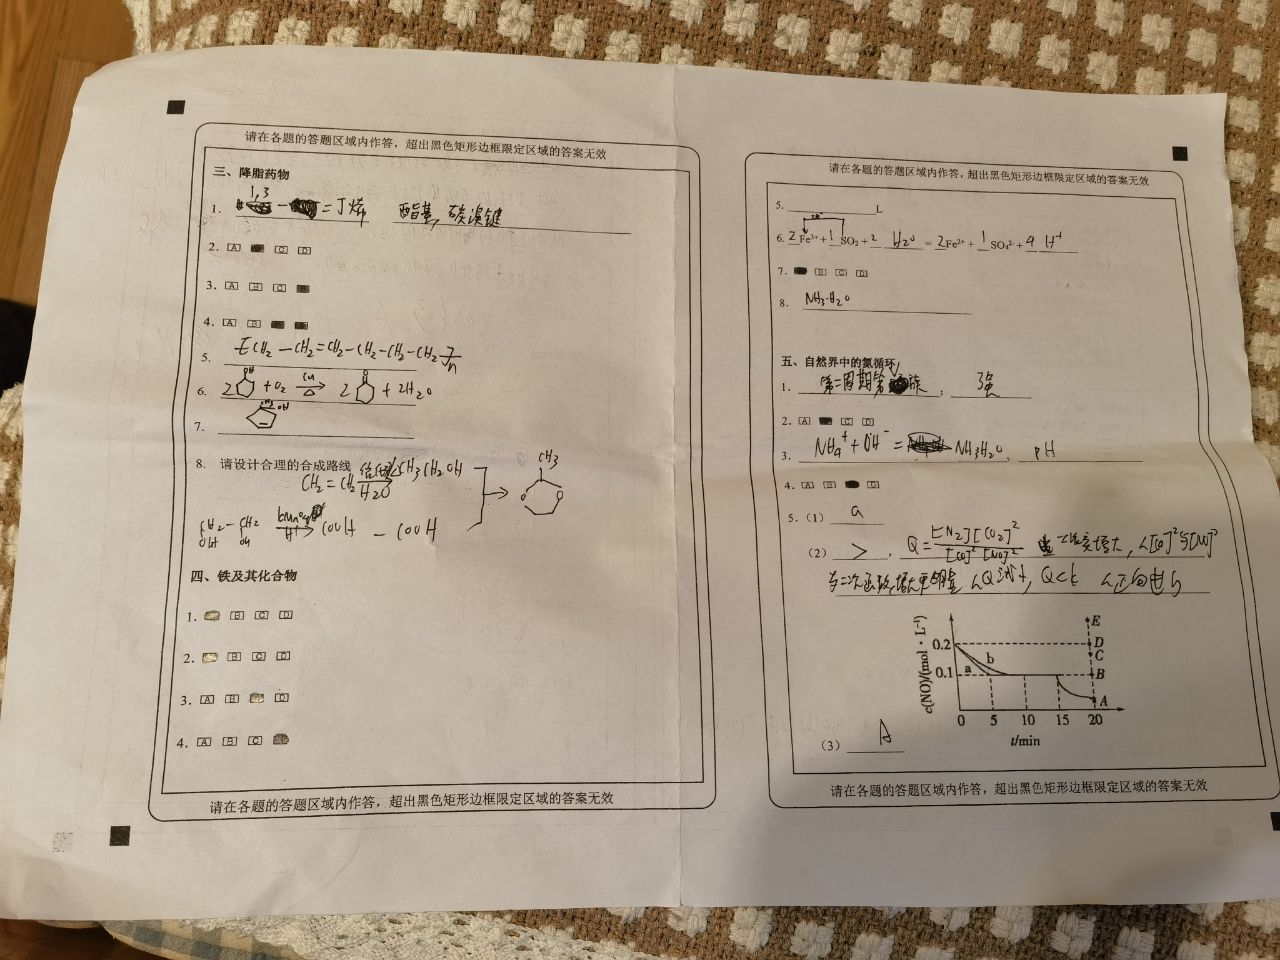 请在各题的答题区域内作答，超出黑色矩形边框限定区域的答案无效
三、降脂药物
1. 1,3 = 丁烯 酯基, 碳溴键
2. [A] [C] [D]
3. [A] [B] [C]
4. [A] [B]
5. [CH2—CH2=CH2—CH2—CH2—CH2]n
6. 2 OH +O2 Cu △ 2 O + 2H2O
7. OH
8. 请设计合理的合成路线
CH2=CH2 H2O CH3CH2OH
CH3
CH2—CH2 OH OH H+ COOH — COOH
O O
四、铁及其化合物
1. [B] [C] [D]
2. [B] [C] [D]
3. [A] [B] [D]
4. [A] [B] [C]
请在各题的答题区域内作答，超出黑色矩形边框限定区域的答案无效
请在各题的答题区域内作答，超出黑色矩形边框限定区域的答案无效
5. L
6. 2Fe3++1SO2+2 H2O = 2Fe2++1SO42-+4 H+
7. [B] [C] [D]
8. NH3·H2O
五、自然界中的氮循环
1. 第二周期第 族 ; 强
2. [A] [C] [D]
3. NH4+ + OH- = NH3H2O、 pH
4. [A] [B] [D]
5. (1) a
(2) > , Q= [N2][CO2]2 / [CO]2[NO]2 增大, [CO]2与[NO]2
为二次函数,增大更明显 Q Q<k 正向
c(NO)/(mol·L-1)
0.2
0.1
a b
E
D
C
B
A
0 5 10 15 20
t/min
(3) A
请在各题的答题区域内作答，超出黑色矩形边框限定区域的答案无效